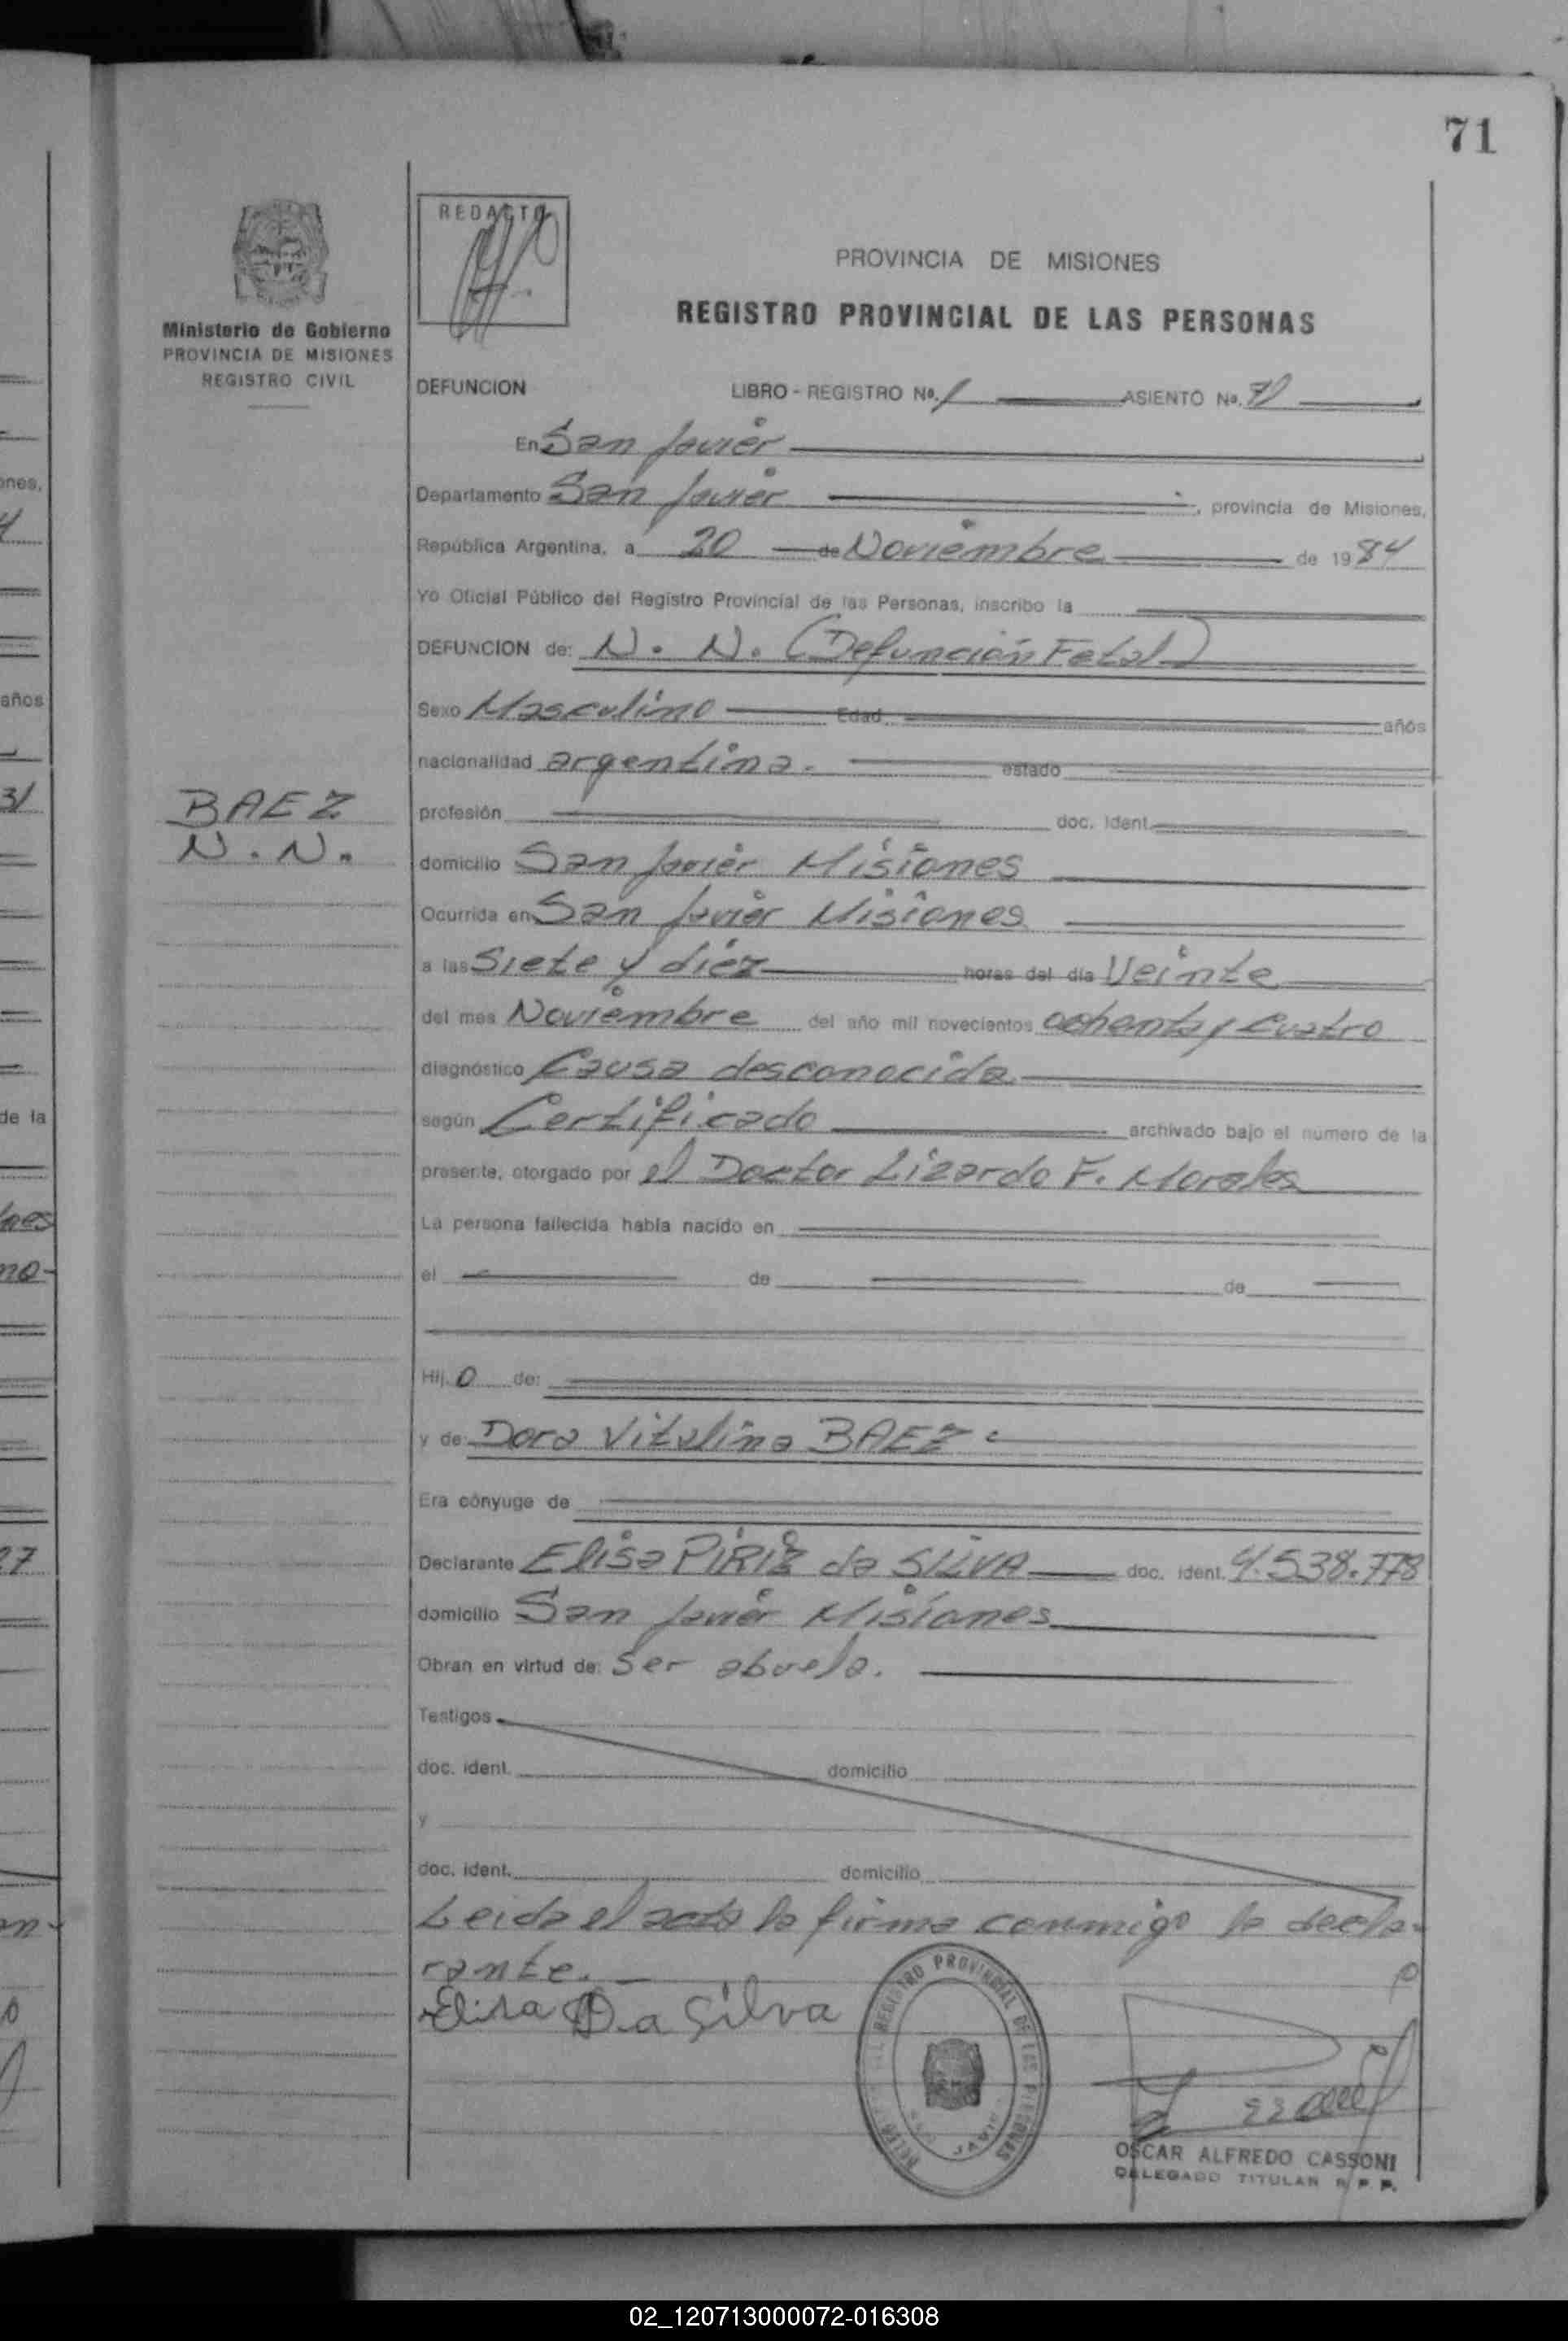 71
REDACTO
PROVINCIA DE MISIONES
REGISTRO PROVINCIAL DE LAS PERSONAS
Ministerio de Gobierno
PROVINCIA DE MISIONES
REGISTRO CIVIL
DEFUNCION LIBRO - REGISTRO Nº. 1 ASIENTO Nº. 71
En San Javier
Departamento San Javier, provincia de Misiones,
República Argentina, a 20 de Noviembre de 1984
Yo Oficial Público del Registro Provincial de las Personas, inscribo la
DEFUNCION de: N. N. (Defunción Fetal)
Sexo Masculino Edad años
nacionalidad argentina. estado
BAEZ
N. N.
profesión doc. ident.
domicilio San Javier Misiones
Ocurrida en San Javier Misiones
a las Siete y diez horas del día Veinte
del mes Noviembre del año mil novecientos ochenta y cuatro
diagnóstico Causa desconocida
según Certificado archivado bajo el número de la
presente, otorgado por el Doctor Lizardo F. Morales
La persona fallecida había nacido en
el de de
Hij o de:
y de Dora Vitalina BAEZ
Era cónyuge de
Declarante Elisa PIRIZ da SILVA doc. ident. 4.538.778
domicilio San Javier Misiones
Obran en virtud de: Ser abuela.
Testigos
doc. ident. domicilio
y
doc. ident. domicilio
Leida el acta la firma conmigo la decla-
rante.
Elisa Da Silva
REGISTRO PROVINCIAL DE LAS PERSONAS
OSCAR ALFREDO CASSONI
DELEGADO TITULAR R. P. P.
02_120713000072-016308